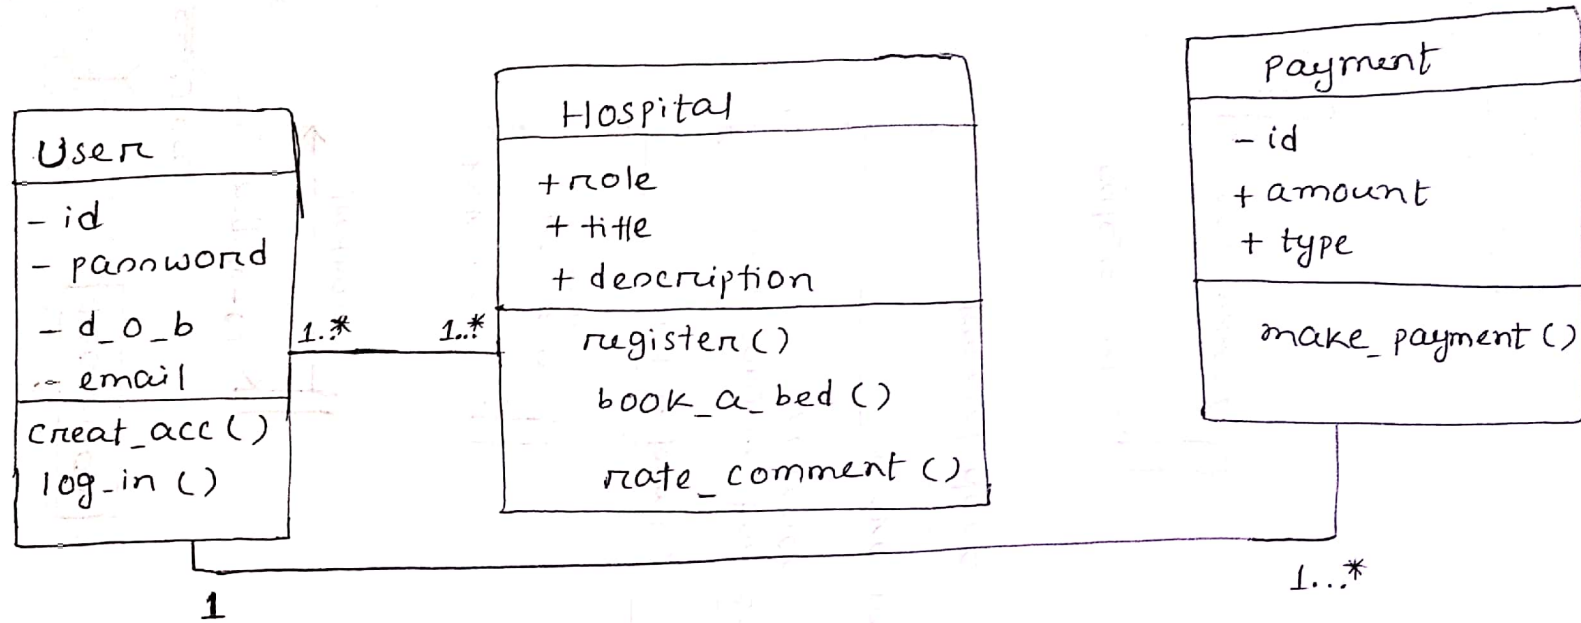 User
- id
- password
- d_o_b
- email
creat_acc ()
log_in ()
1..*
1..*
Hospital
+ role
+ title
+ description
register ()
book_a_bed ()
rate_comment ()
Payment
- id
+ amount
+ type
make_payment ()
1
1...*